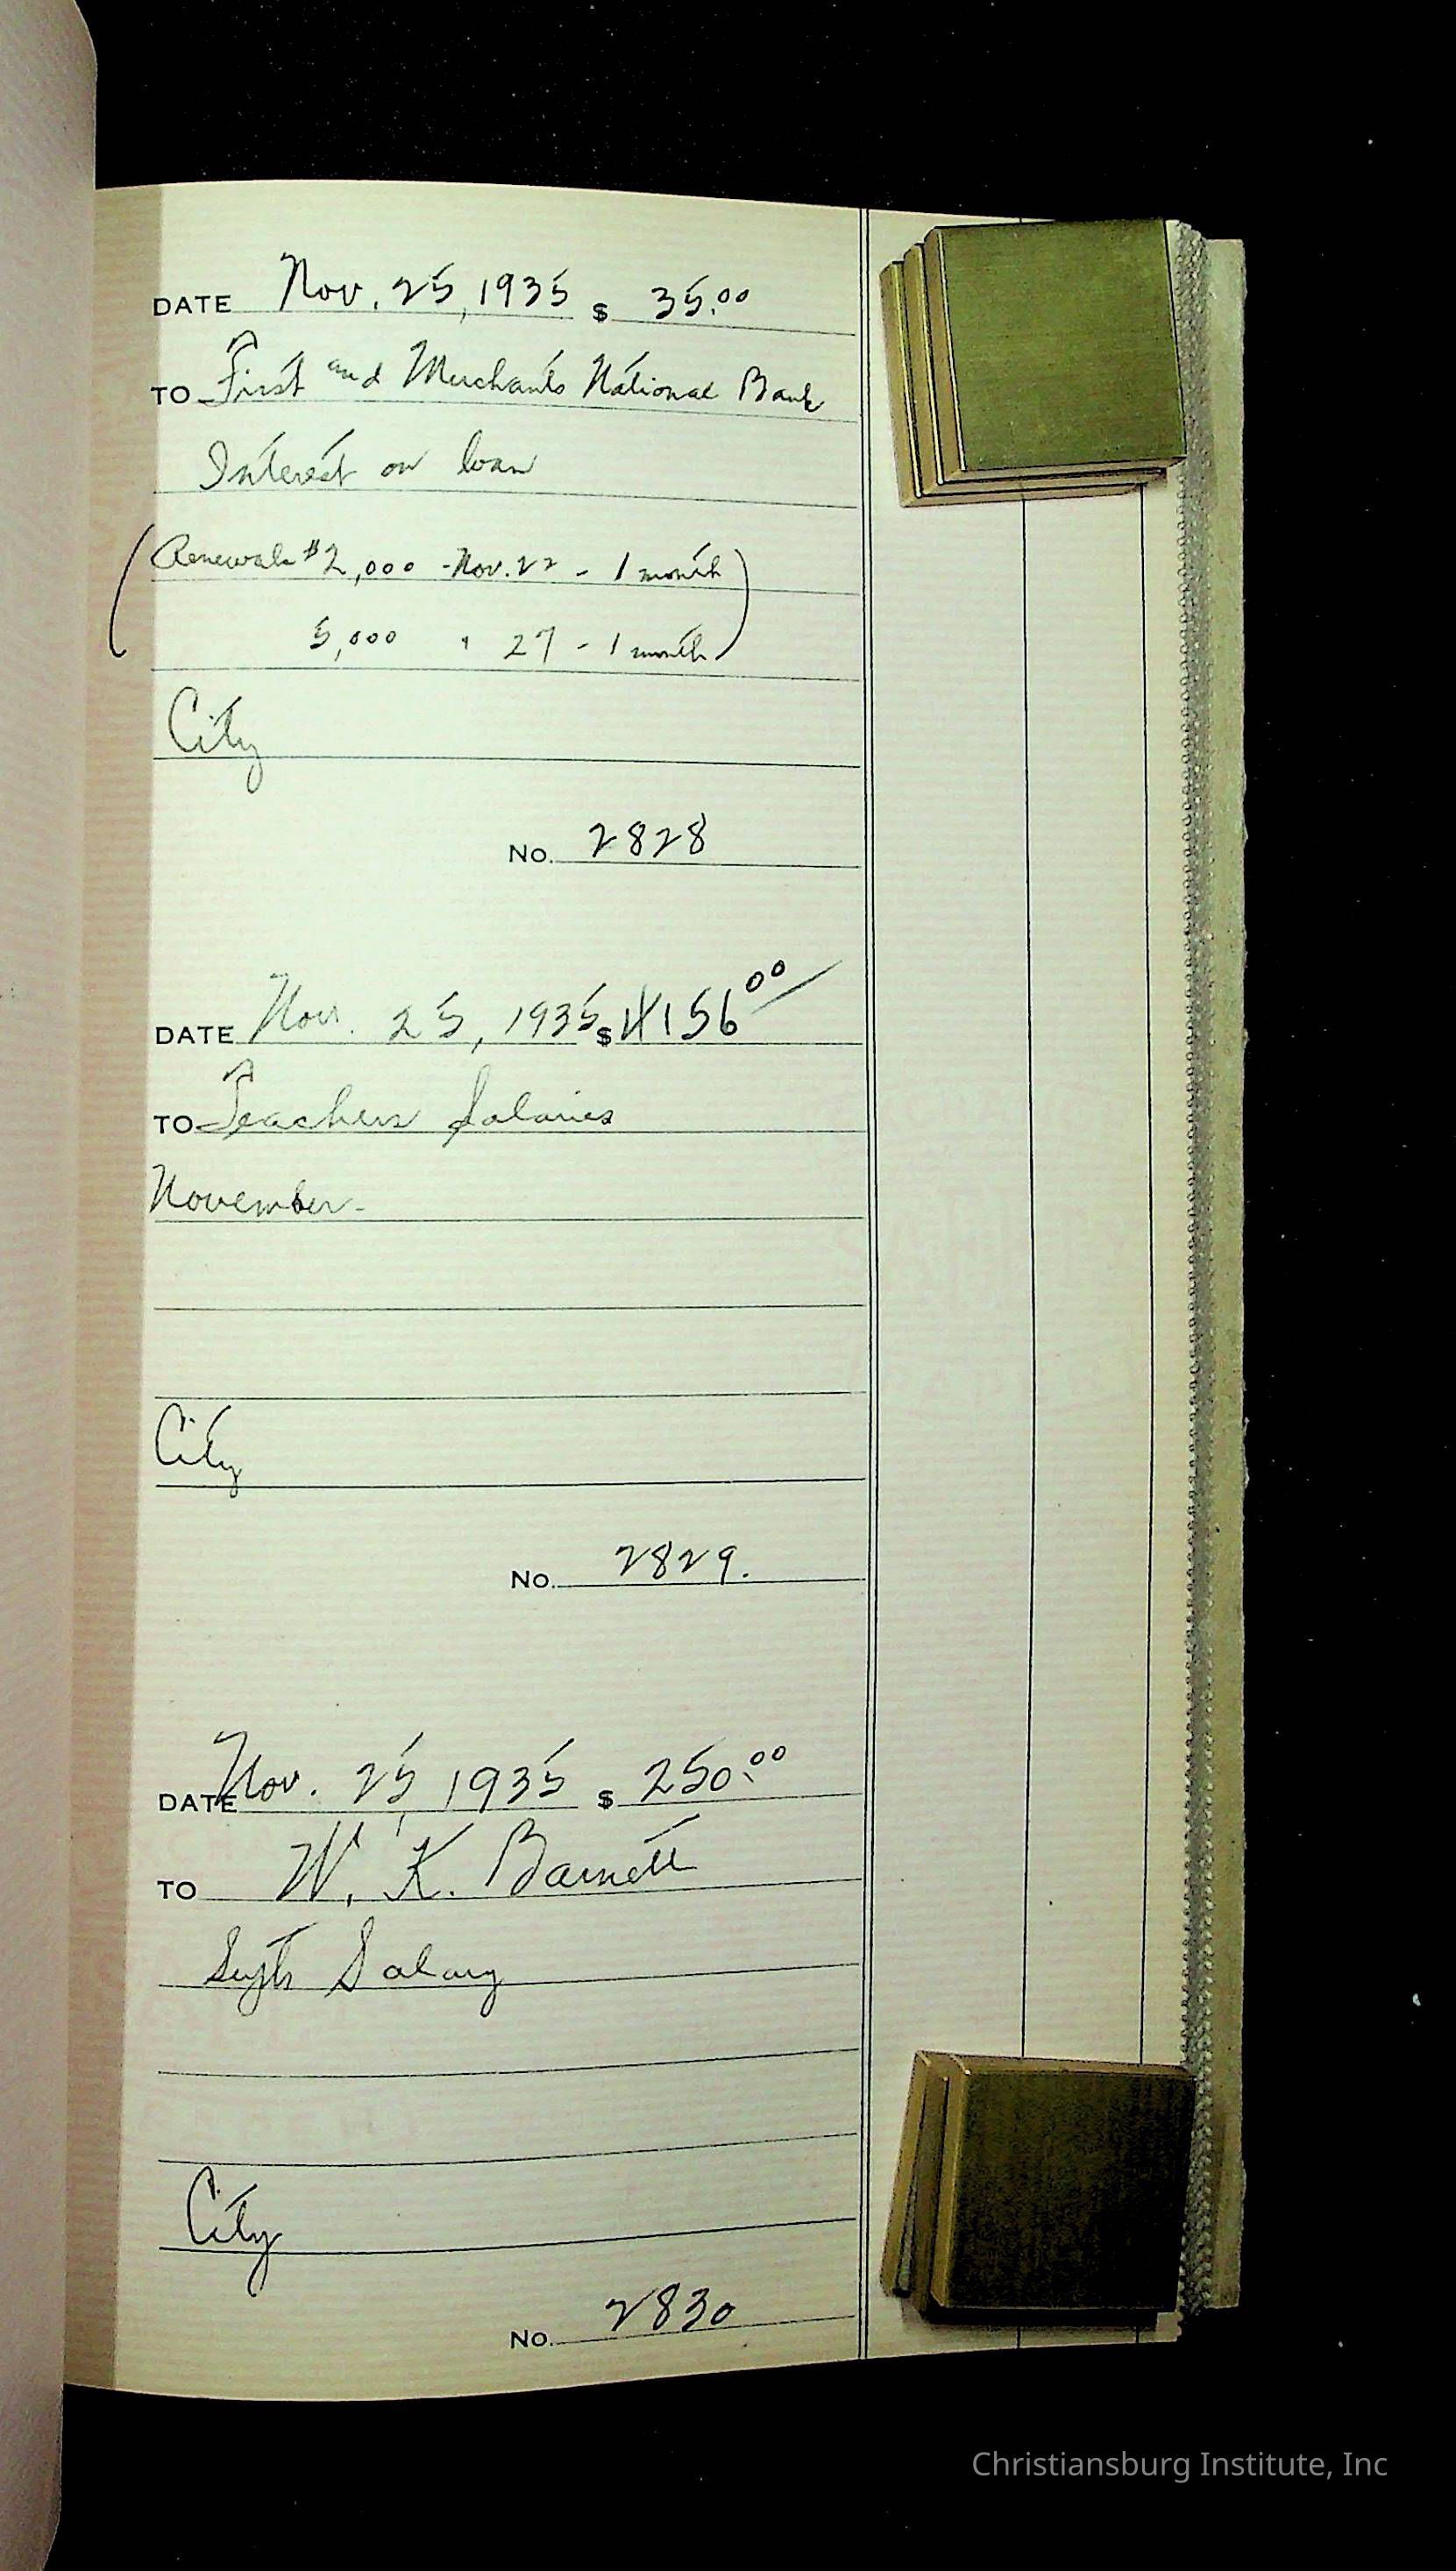 DATE Nov. 25, 1935 $ 35.00
TO First and Merchants National Bank
Interest on loan
(Renewals $2,000 - Nov. 22 - 1 month
5,000 " 27 - 1 month)
City
No. 2828
DATE Nov. 25, 1935 $ 1156 00
TO Teachers Salaries
November -
City
No. 2829.
DATE Nov. 25, 1935 $ 250.00
TO W. K. Barnett
Supts Salary
City
No. 2830
Christiansburg Institute, Inc